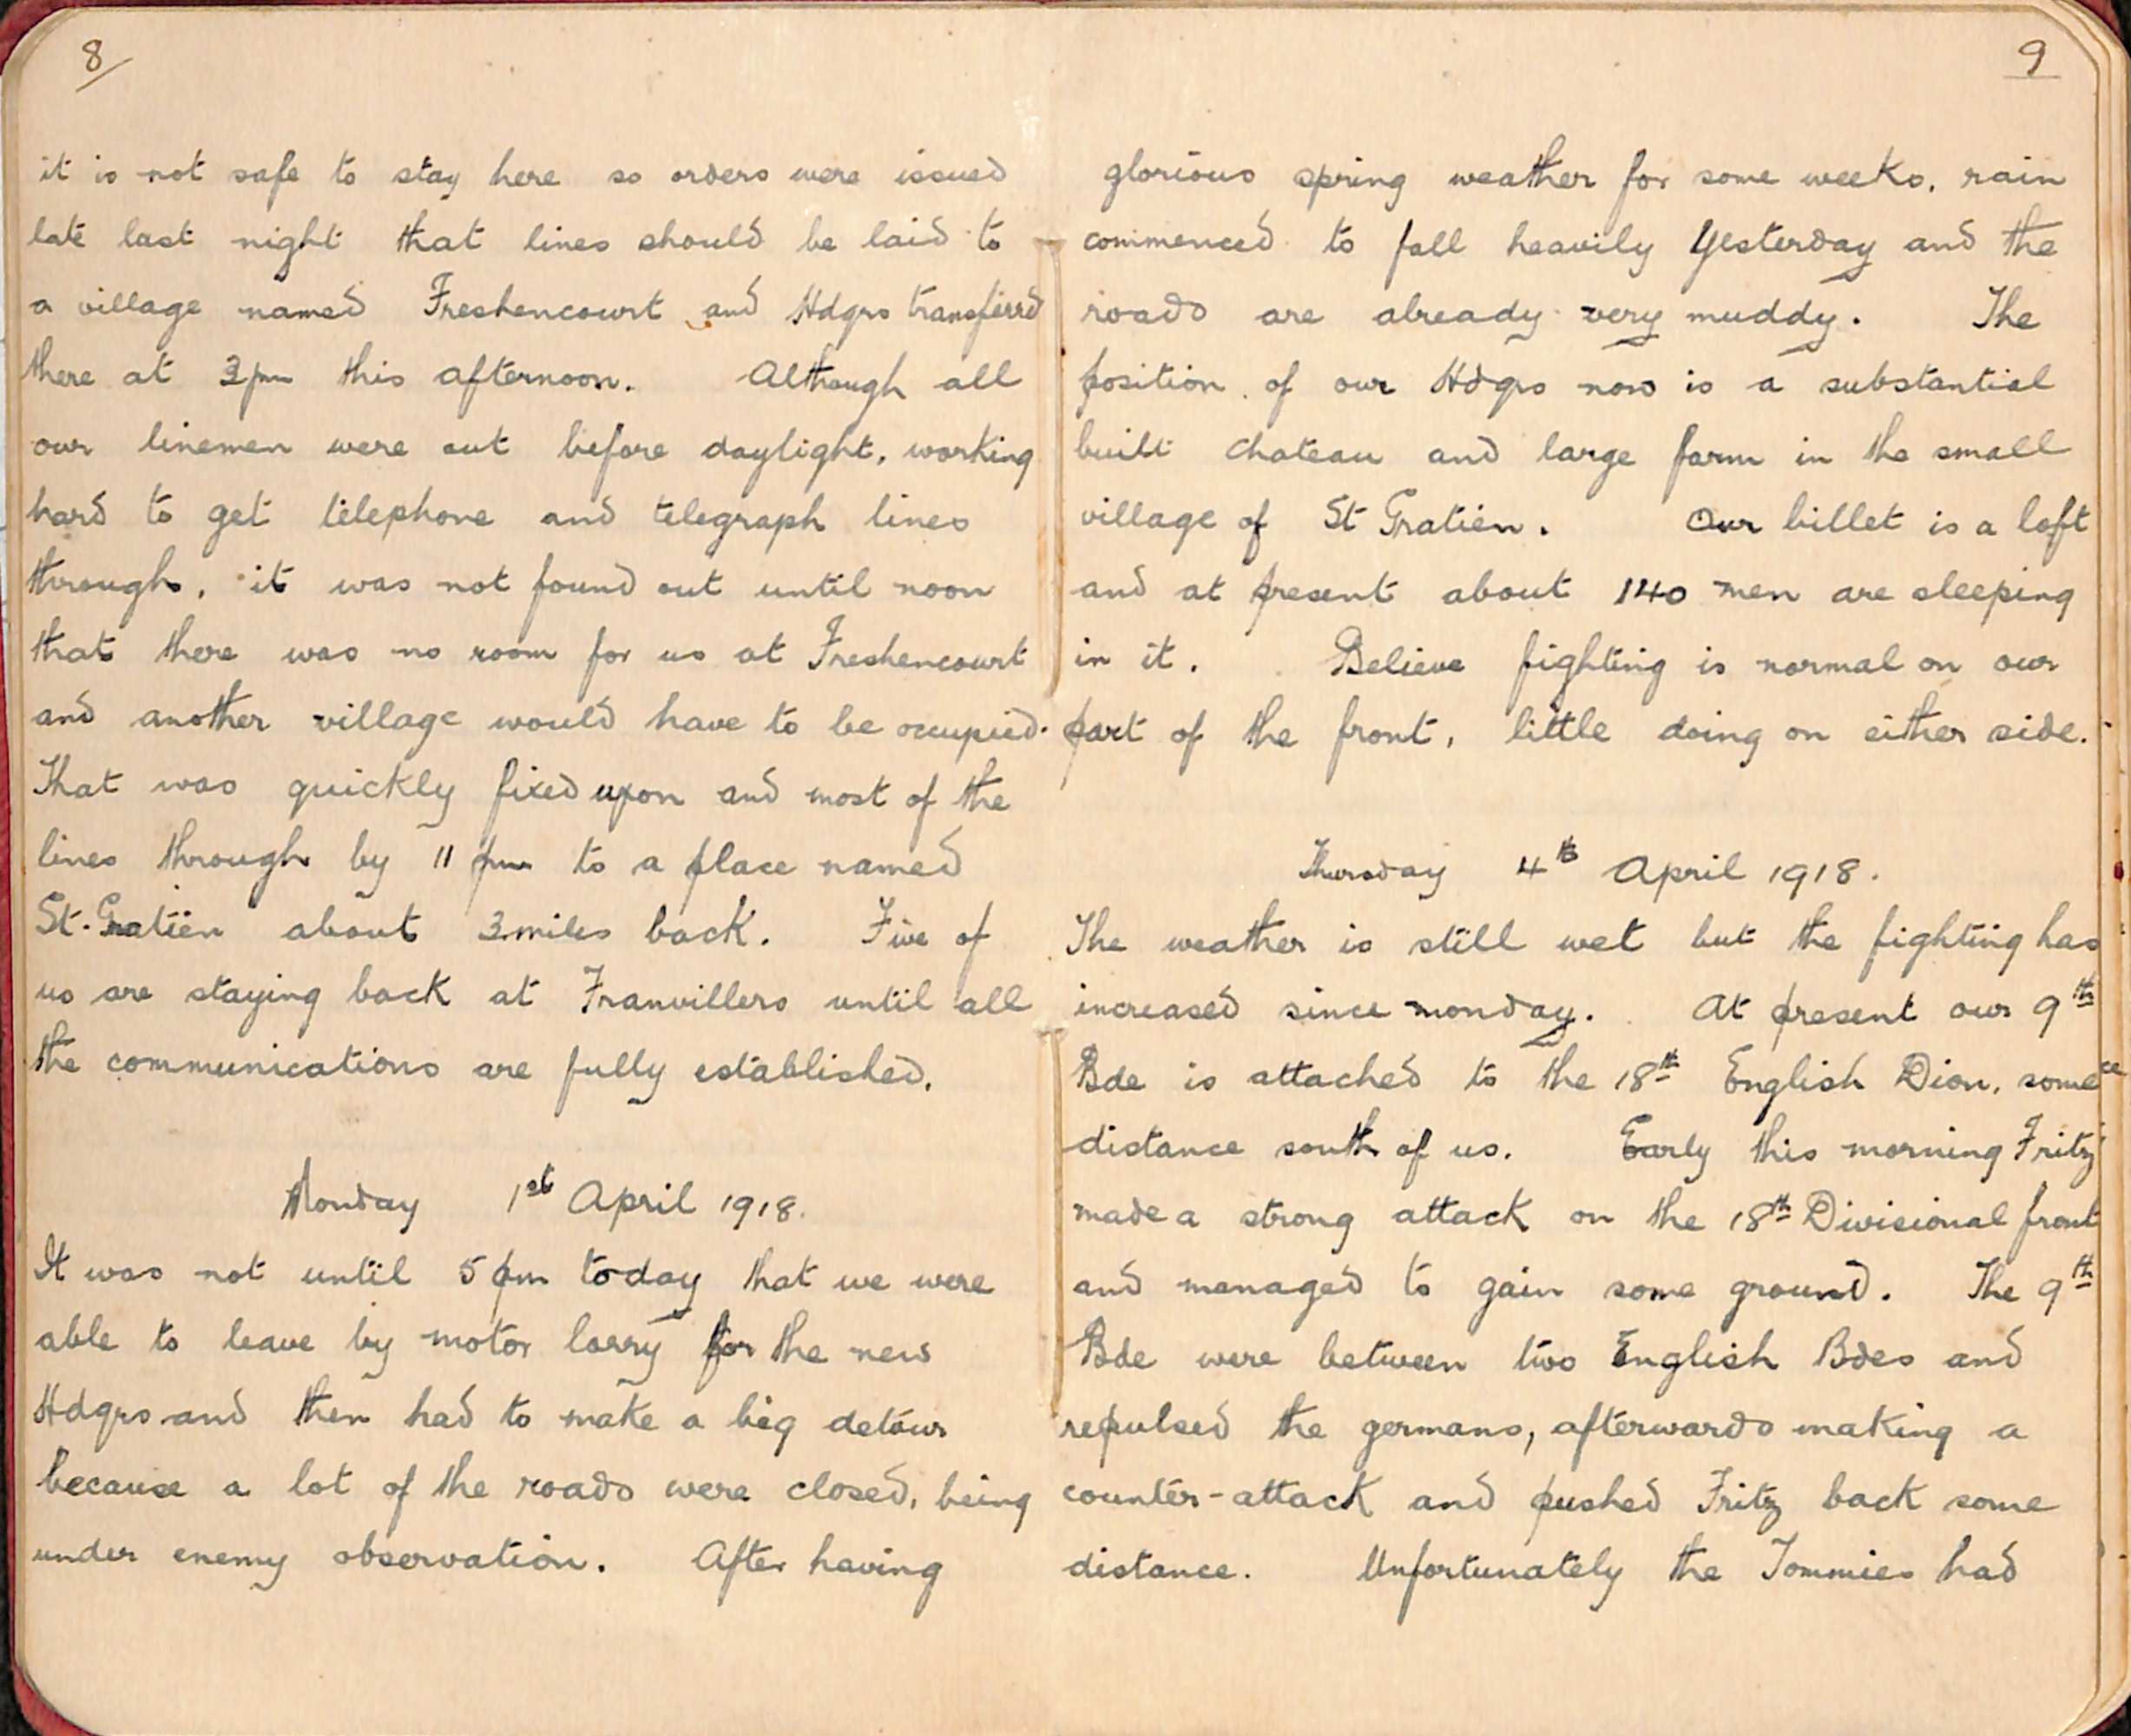 8
it is not safe to stay here so orders were issued
late last night that lines should be laid to
a village named Freshencourt and Hdqrs transferrd
there at 3 pm this afternoon. Although all
our linemen were out before daylight, working
hard to get telephone and telegraph lines
through, it was not found out until noon
that there was no room for us at Freshencourt
and another village would have to be occupied.
That was quickly fixed upon and most of the
lines through by 11 pm to a place named
St. Gratien about 3 miles back. Five of
us are staying back at Franvillers until all
the communications are fully established.
Monday 1st April 1918.
It was not until 5 pm today that we were
able to leave by motor lorry for the new
Hdqrs and then had to make a big detour
because a lot of the roads were closed, being
under enemy observation. After having
9
glorious spring weather for some weeks, rain
commenced to fall heavily Yesterday and the
roads are already very muddy. The
position of our Hdqrs now is a substantial
built chateau and large farm in the small
village of St Gratien. Our billet is a loft
and at present about 140 men are sleeping
in it. Believe fighting is normal on our
part of the front, little doing on either side.
Thursday 4th April 1918.
The weather is still wet but the fighting has
increased since monday. At present our 9th
Bde is attached to the 18th English Dion, some
distance south of us. Early this morning Fritz
made a strong attack on the 18th Divisional front
and managed to gain some ground. The 9th
Bde were between two English Bdes and
repulsed the germans, afterwards making a
counter-attack and pushed Fritz back some
distance. Unfortunately the Tommies had